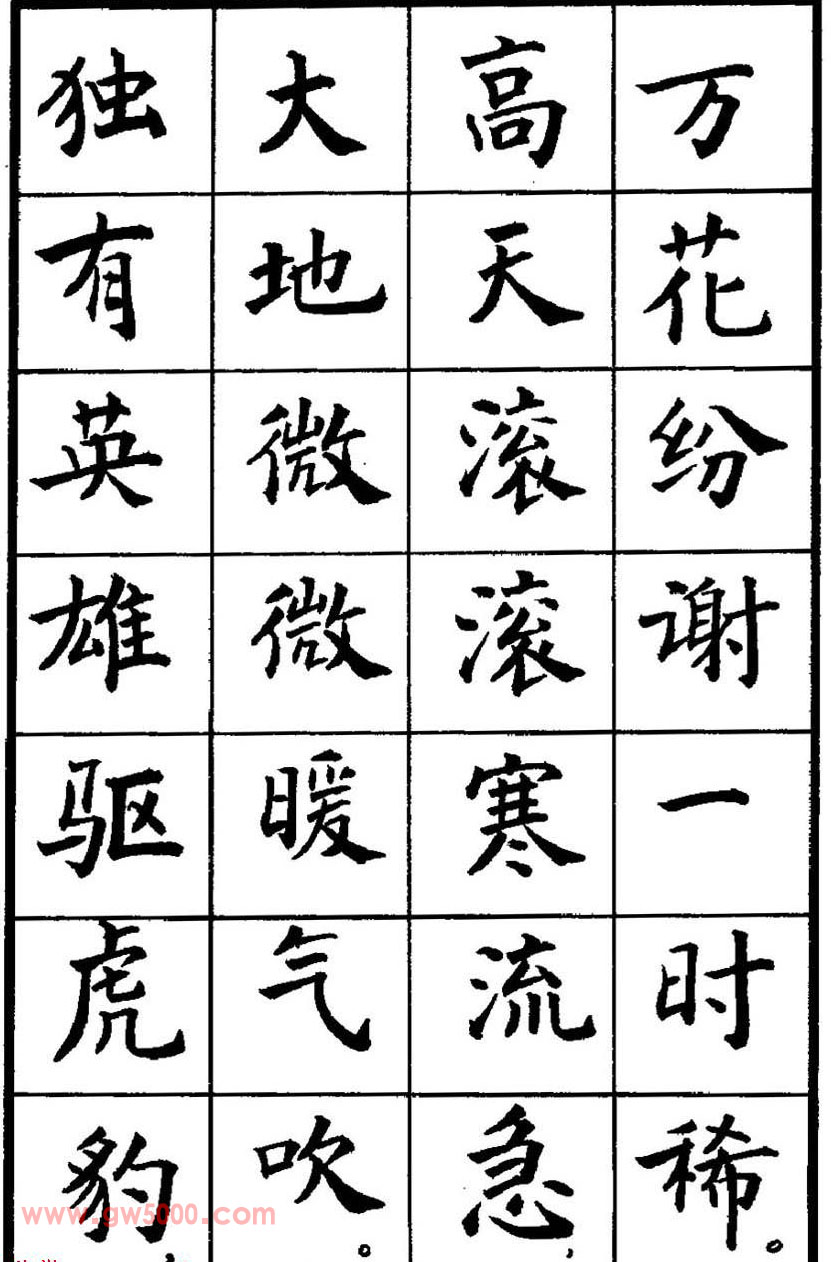 万花纷谢一时稀。
高天滚滚寒流急，
大地微微暖气吹。
独有英雄驱虎豹
www.gw5000.com